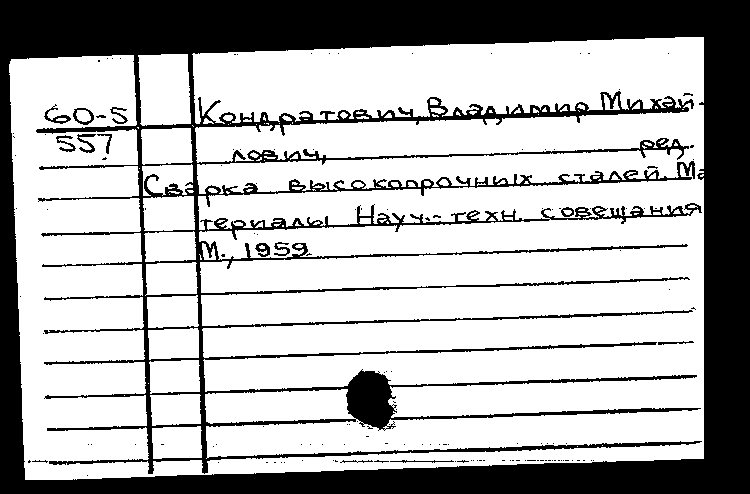 60-5
557
Кондратович, Владимир Михай-
лович, ред.
Сварка высокопрочных сталей. Ма
териалы Науч.-техн. совещания
М., 1959